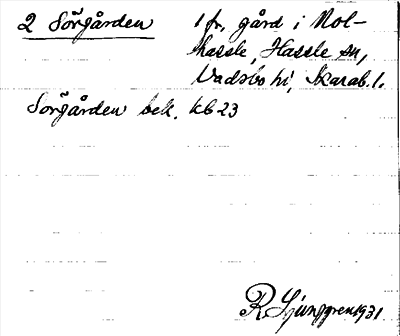 2 Sörgården 1 fr, gård i Mol-
hassle, Hassle sn,
Vadsbo hd, Skarab. l.
Sörgården bek. kb 23
R Ljunggren 1931